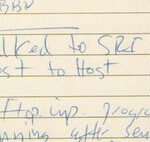 BBN
lked to SRI
ost to Host
ftop imp progra
nning after sen